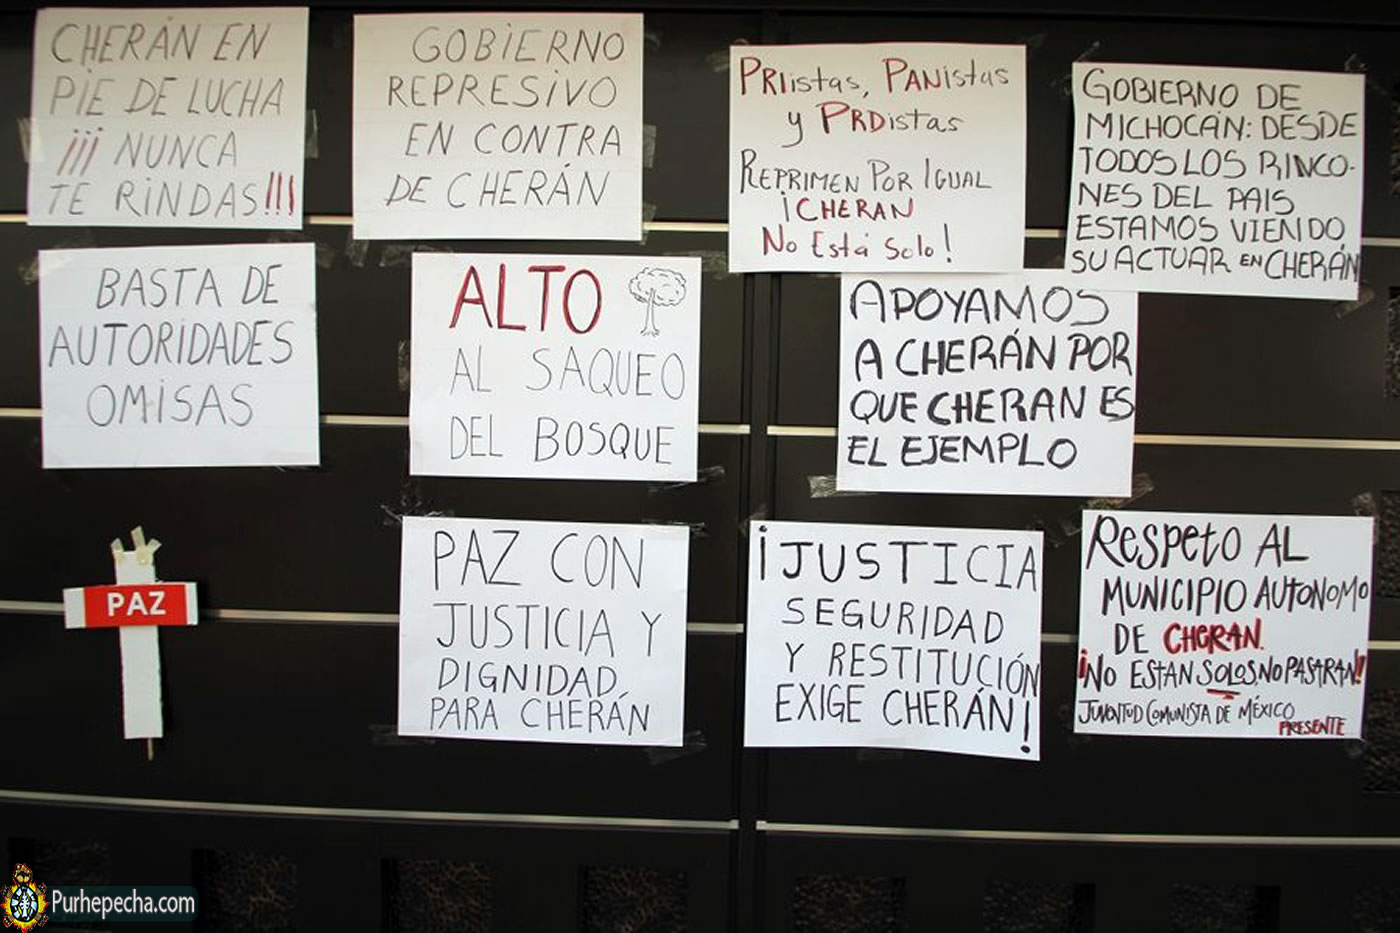 CHERÁN EN
PIE DE LUCHA
¡¡¡ NUNCA
TE RINDAS!!!
GOBIERNO
REPRESIVO
EN CONTRA
DE CHERÁN
PRIistas, PANistas
y PRDistas
REPRIMEN POR IGUAL
¡CHERAN
No Está Solo!
GOBIERNO DE
MICHOCÁN: DESDE
TODOS LOS RINCO-
NES DEL PAIS
ESTAMOS VIENDO
SU ACTUAR EN CHERÁN
BASTA DE
AUTORIDADES
OMISAS
ALTO
AL SAQUEO
DEL BOSQUE
APOYAMOS
A CHERÁN POR
QUE CHERAN ES
EL EJEMPLO
PAZ
PAZ CON
JUSTICIA Y
DIGNIDAD
PARA CHERÁN
¡JUSTICIA
SEGURIDAD
Y RESTITUCIÓN
EXIGE CHERÁN!
Respeto AL
MUNICIPIO AUTONOMO
DE CHERAN.
¡NO ESTAN SOLOS, NO PASARAN!
JUVENTUD COMUNISTA DE MÉXICO
PRESENTE
Purhepecha.com